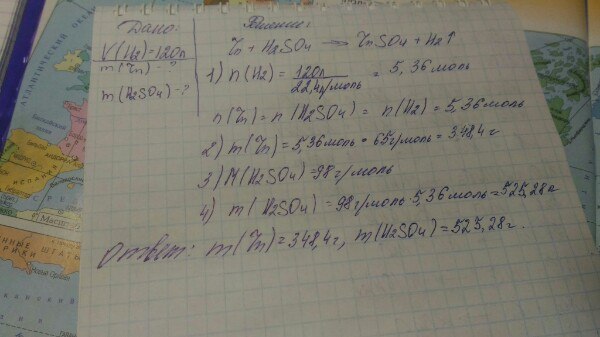 Дано:
V(H2)=120л
m(Zn)-?
m(H2SO4)-?
Решение:
Zn + H2SO4 = ZnSO4 + H2↑
1) n(H2) = 120л / 22,4л/моль = 5,36 моль
n(Zn) = n(H2SO4) = n(H2) = 5,36 моль
2) m(Zn) = 5,36 моль * 65г/моль = 348,4 г
3) M(H2SO4) = 98 г/моль
4) m(H2SO4) = 98г/моль · 5,36 моль = 525,28 г
Ответ: m(Zn) = 348,4г, m(H2SO4) = 525,28 г.
АТЛАНТИЧЕСКИЙ